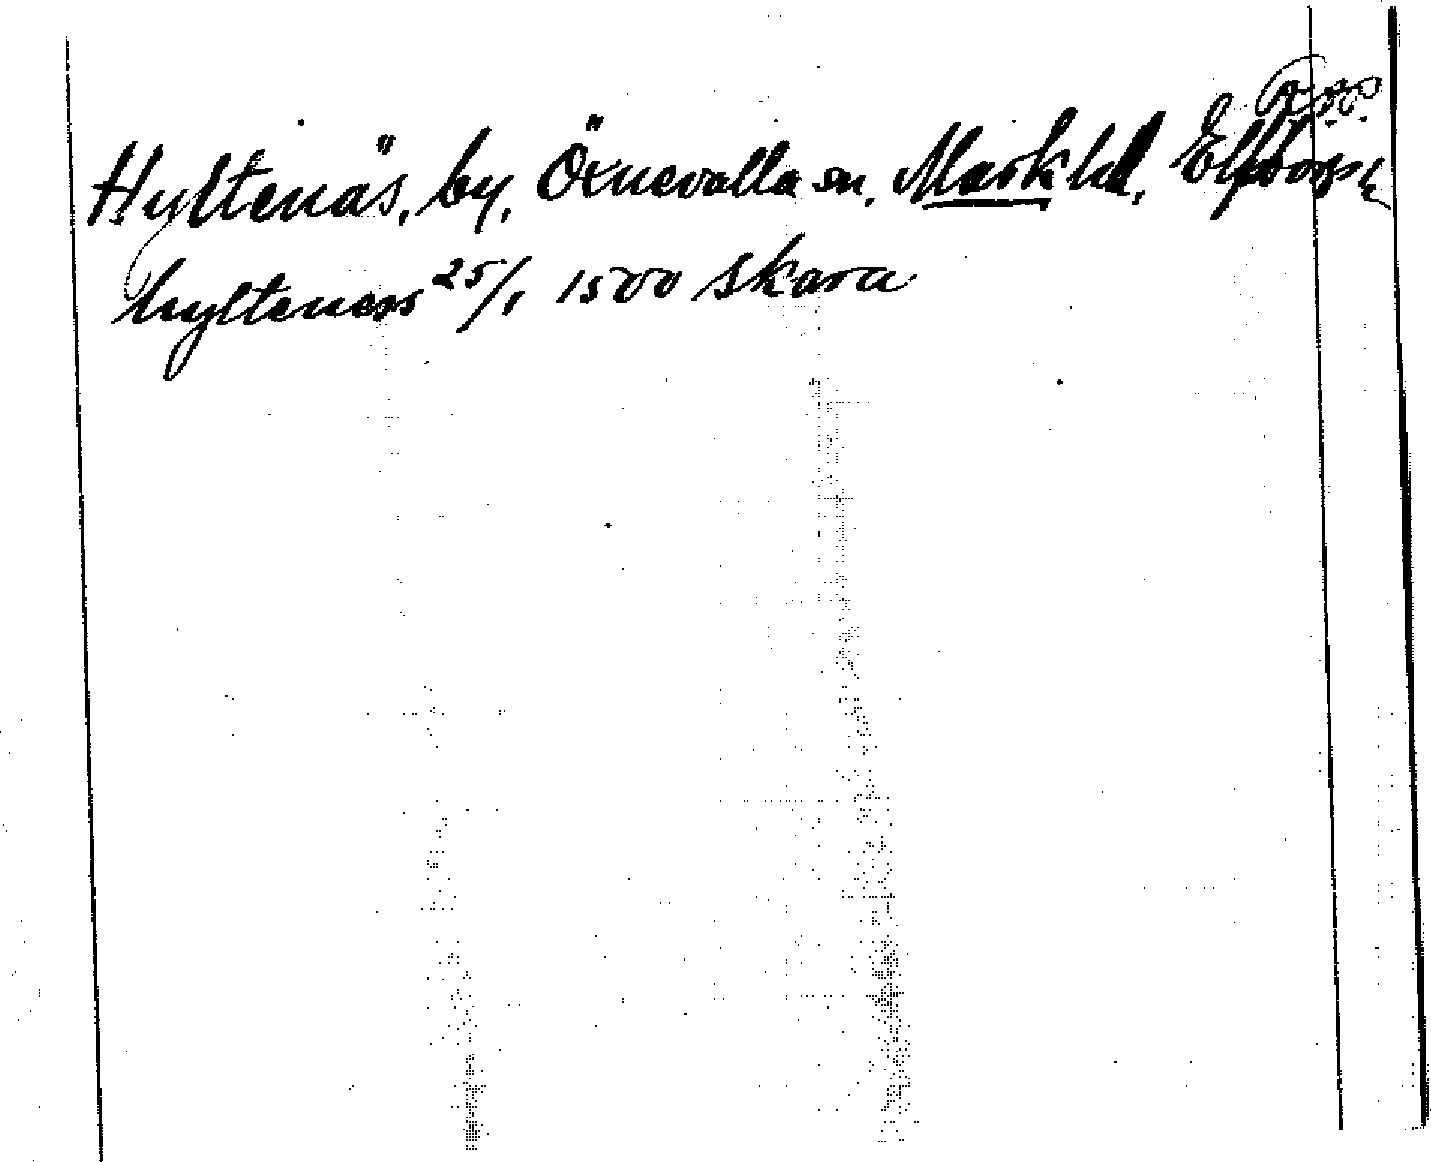 Hyltenäs, by, Öxnevalla sn. Mark hd, Elfsborgs l.
hylteness 25/1 1500 Skara